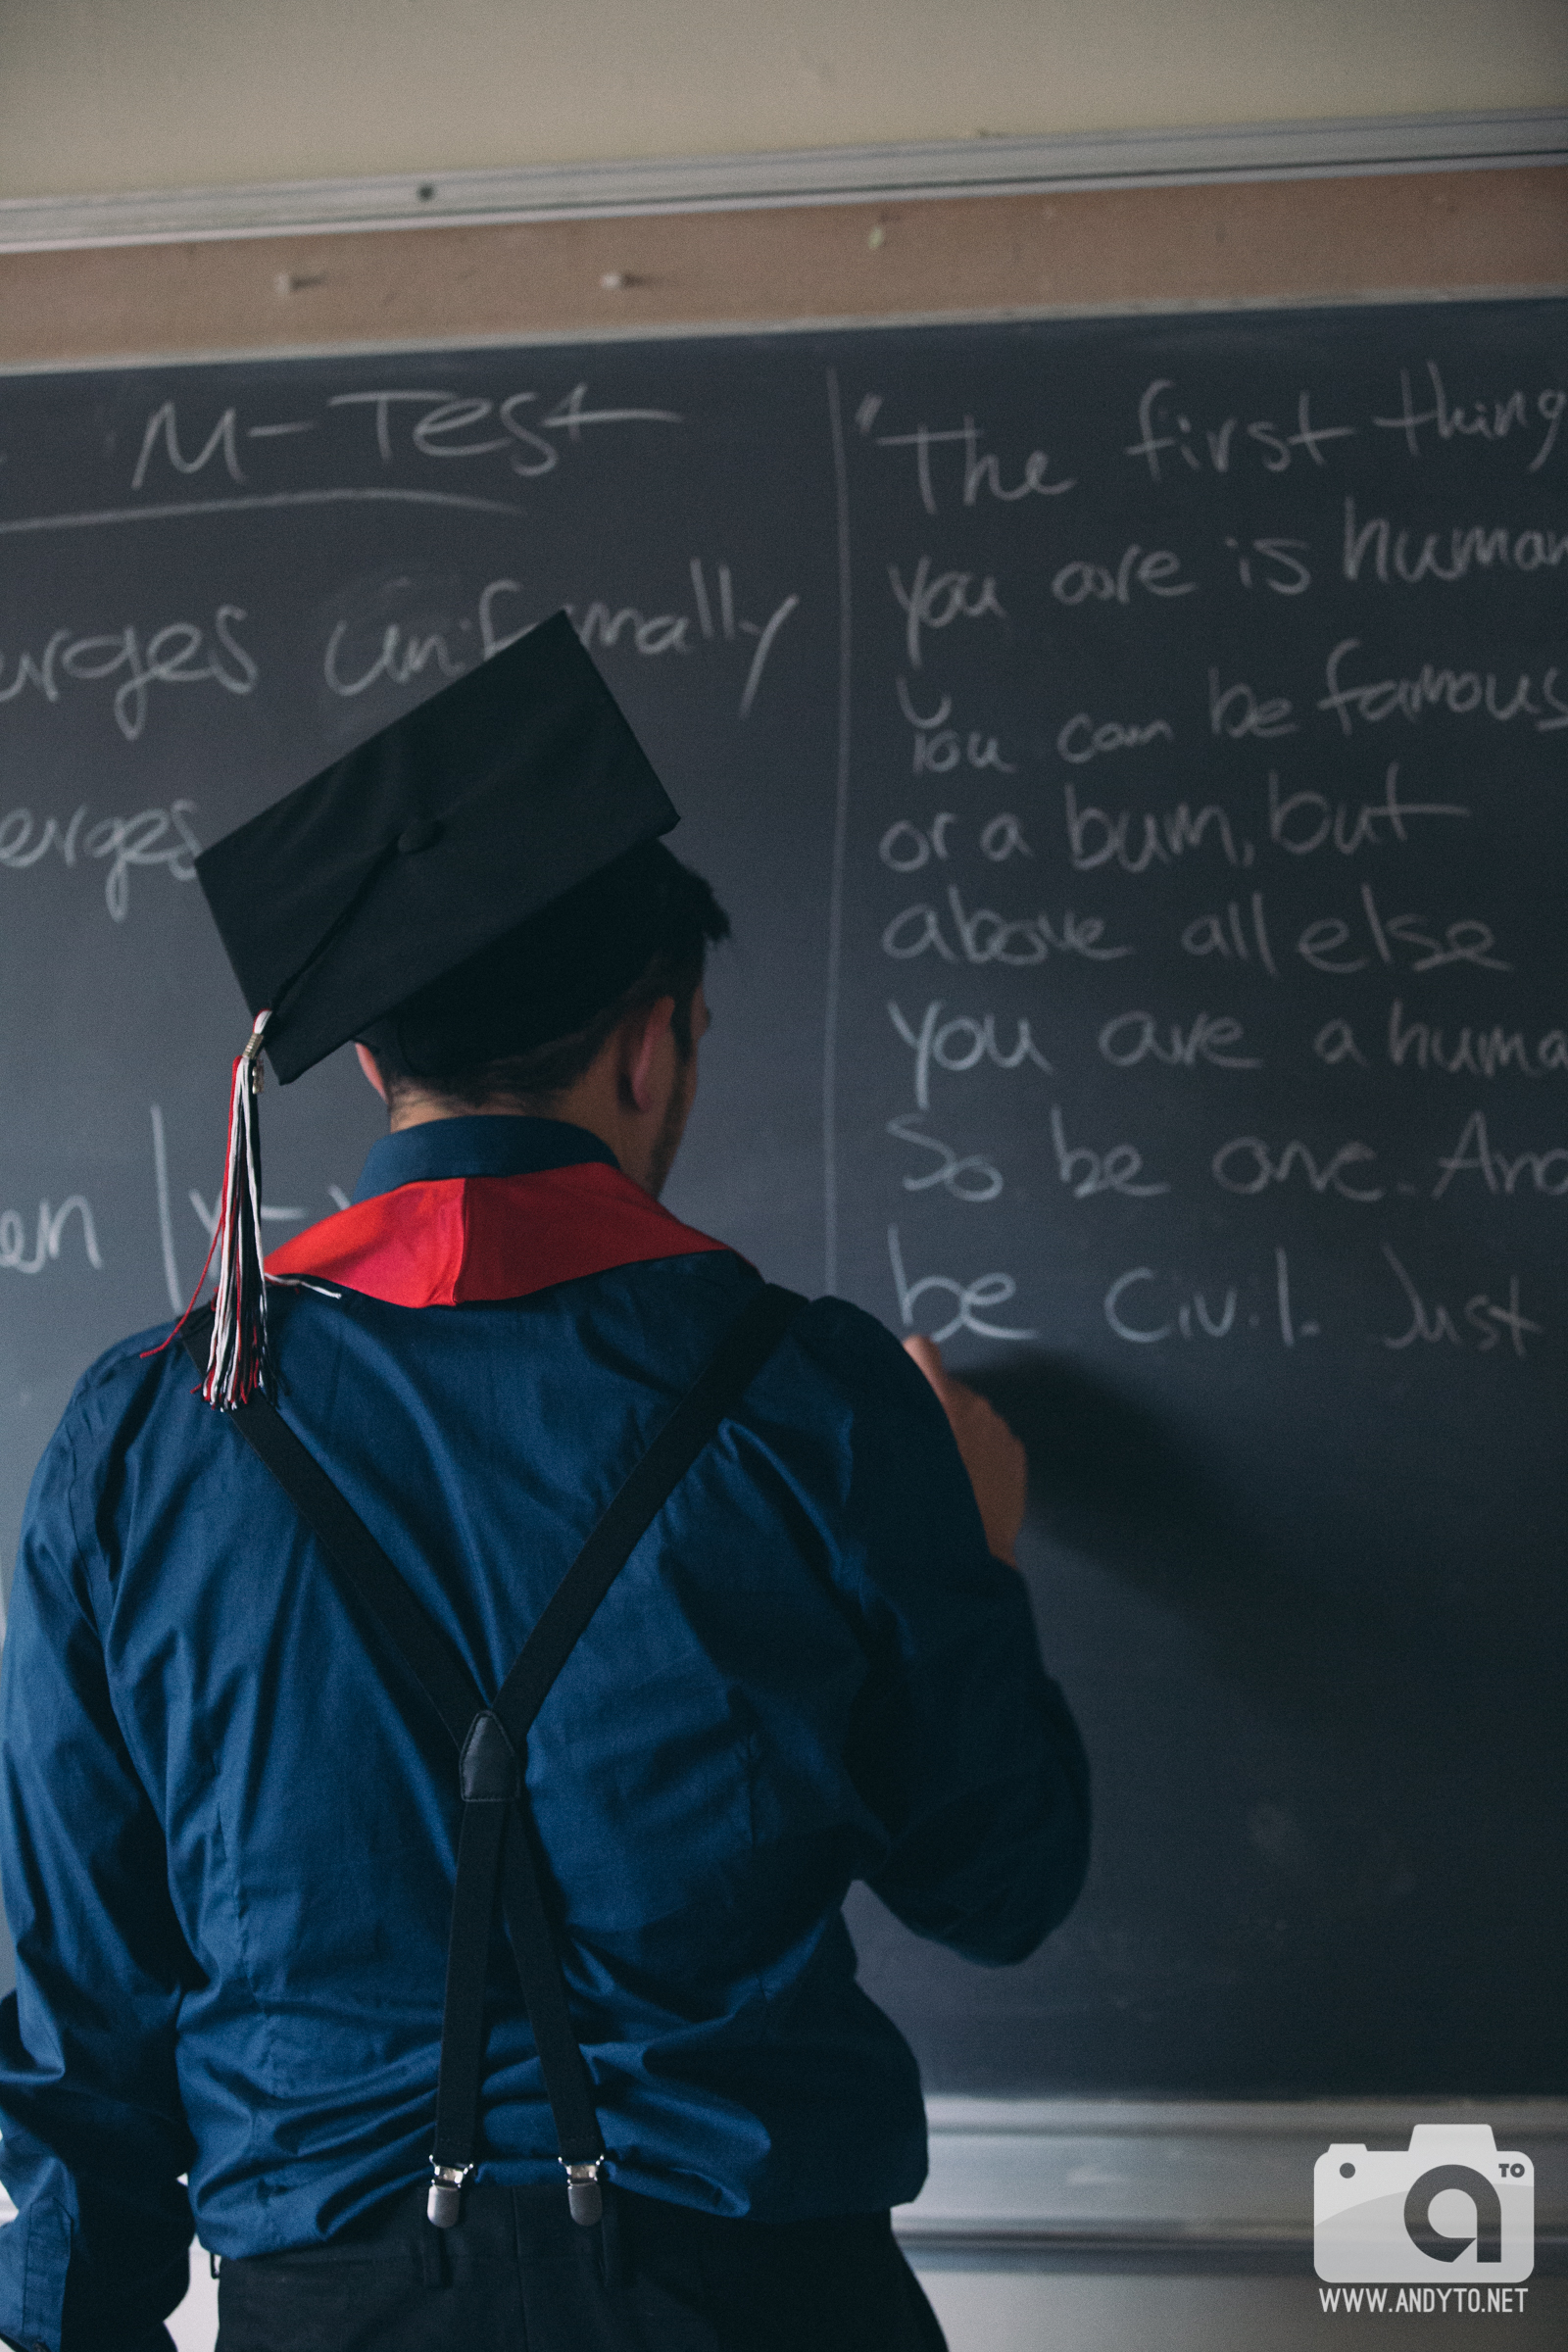 M-Test
erges uniformally
erges
en |x-y
"The first thing
you are is human
You can be famous
or a bum, but
above all else
you are a huma
So be one. And
be civil. Just
TO
a
WWW.ANDYTO.NET